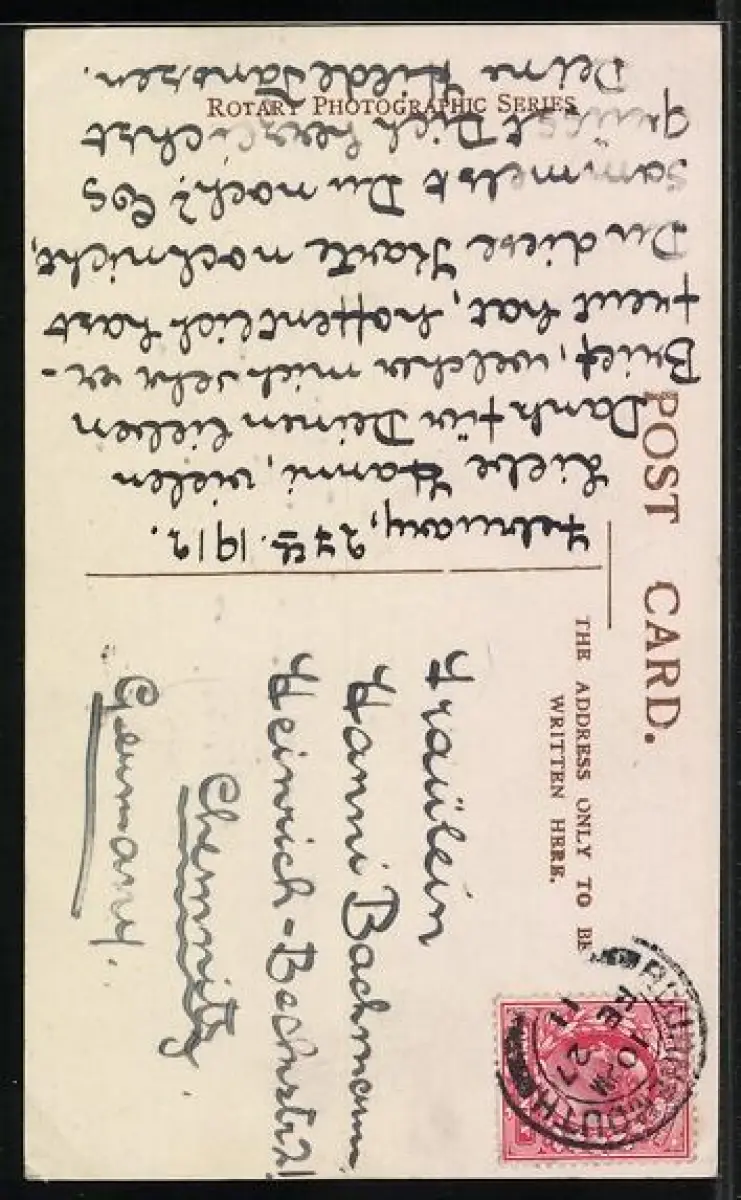 POST CARD.
THE ADDRESS ONLY TO BE
WRITTEN HERE.
ROTARY PHOTOGRAPHIC SERIES
February, 27th. 1911.
Liebe Hanni, vielen
Dank für Deinen lieben
Brief, welcher mich sehr er-
freut hat, hoffentlich hast
Du diese Karte noch nicht,
sammelst Du noch? Es
grüsst Dich herzlichst
Deine Hilde
Fraülein
Hanni Bachmann
Heinrich-Beckstr. 21
Chemnitz
Germany.
BOURNEMOUTH
10 PM
FE 27
11